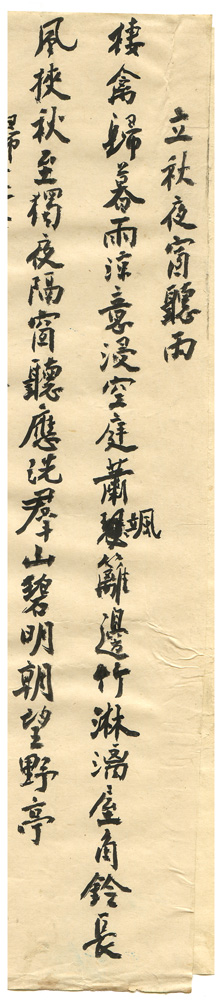 立秋夜窗聽雨
棲禽歸暮雨涼意浸空庭蕭颯籬邊竹淋漓屋角鈴長
風挾秋至獨夜隔窗聽應洗羣山碧明朝望野亭